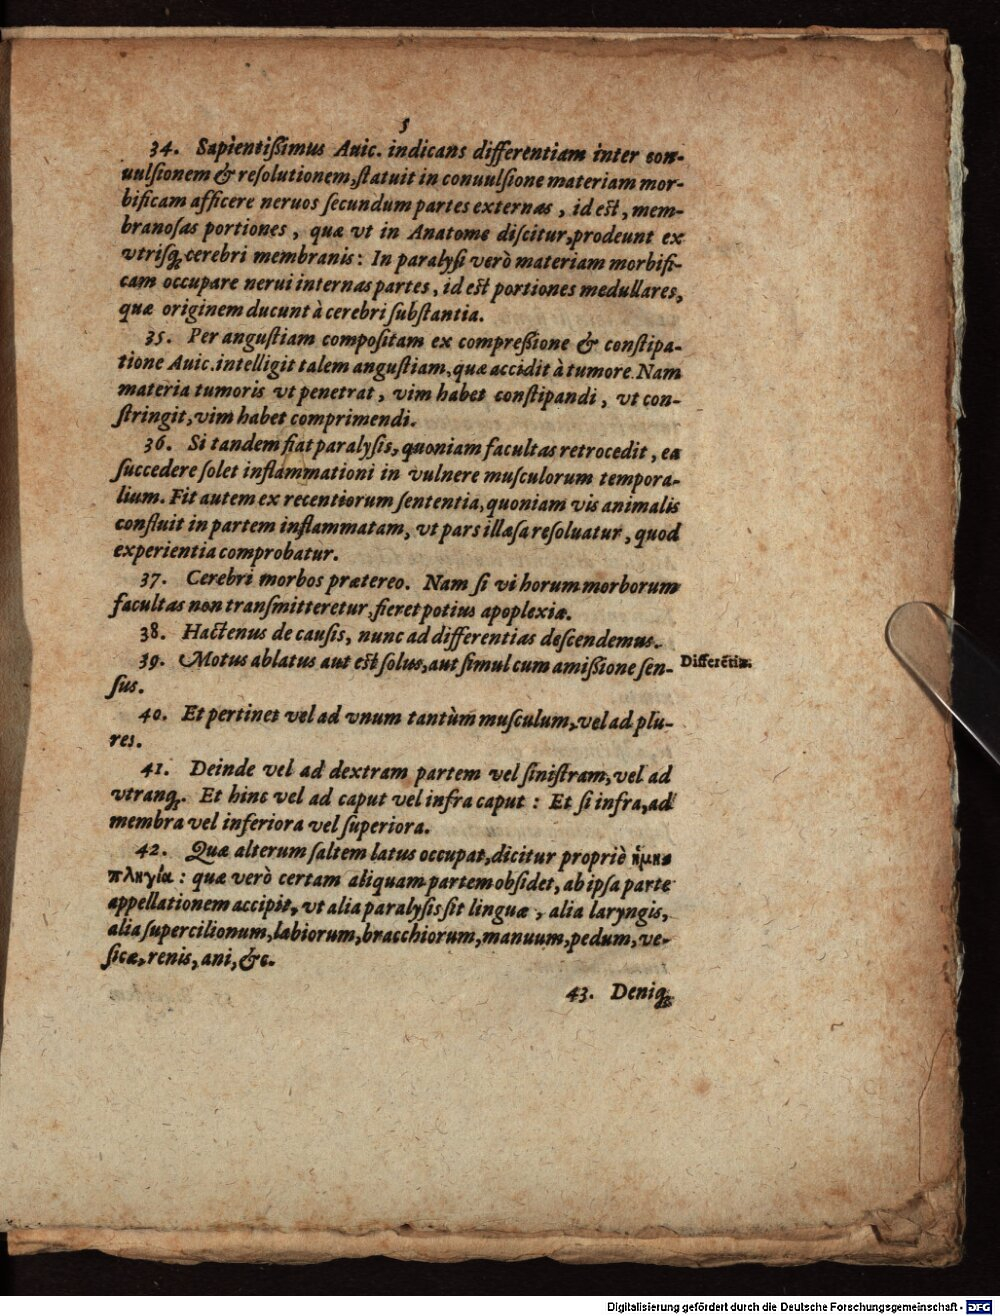 5
34. Sapientißimus Auic. indicans differentiam inter con-
uulſionem & reſolutionem, ſtatuit in conuulſione materiam mor-
bificam afficere neruos ſecundum partes externas, id eſt, mem-
branoſas portiones, quæ vt in Anatome diſcitur, prodeunt ex
vtriſq; cerebri membranis: In paralyſi verò materiam morbifi-
cam occupare nerui internas partes, id eſt portiones medullares,
quæ originem ducunt à cerebri ſubſtantia.
35. Per anguſtiam compoſitam ex compreßione & conſtipa-
tione Auic. intelligit talem anguſtiam, quæ accidit à tumore. Nam
materia tumoris vt penetrat, vim habet conſtipandi, vt con-
ſtringit, vim habet comprimendi.
36. Si tandem fiat paralyſis, quoniam facultas retrocedit, ea
ſuccedere ſolet inflammationi in vulnere muſculorum tempora-
lium. Fit autem ex recentiorum ſententia, quoniam vis animalis
confluit in partem inflammatam, vt pars illæſa reſoluatur, quod
experientia comprobatur.
37. Cerebri morbos prætereo. Nam ſi vi horum morborum
facultas non tranſmitteretur, fieret potius apoplexia.
38. Hactenus de cauſis, nunc ad differentias deſcendemus.
39. Motus ablatus aut eſt ſolus, aut ſimul cum amißione ſen- Differẽtiæ.
ſus.
40. Et pertinet vel ad vnum tantùm muſculum, vel ad plu-
res.
41. Deinde vel ad dextram partem vel ſiniſtram, vel ad
vtranq;. Et hinc vel ad caput vel infra caput: Et ſi infra, ad
membra vel inferiora vel ſuperiora.
42. Quæ alterum ſaltem latus occupat, dicitur propriè ἡμι
πληγία: quæ verò certam aliquam partem obſidet, ab ipſa parte
appellationem accipit, vt alia paralyſis ſit linguæ, alia laryngis,
alia ſupercilionum, labiorum, bracchiorum, manuum, pedum, ve-
ſicæ, renis, ani, &c.
43. Deniq;
Digitalisierung gefördert durch die Deutsche Forschungsgemeinschaft - DFG